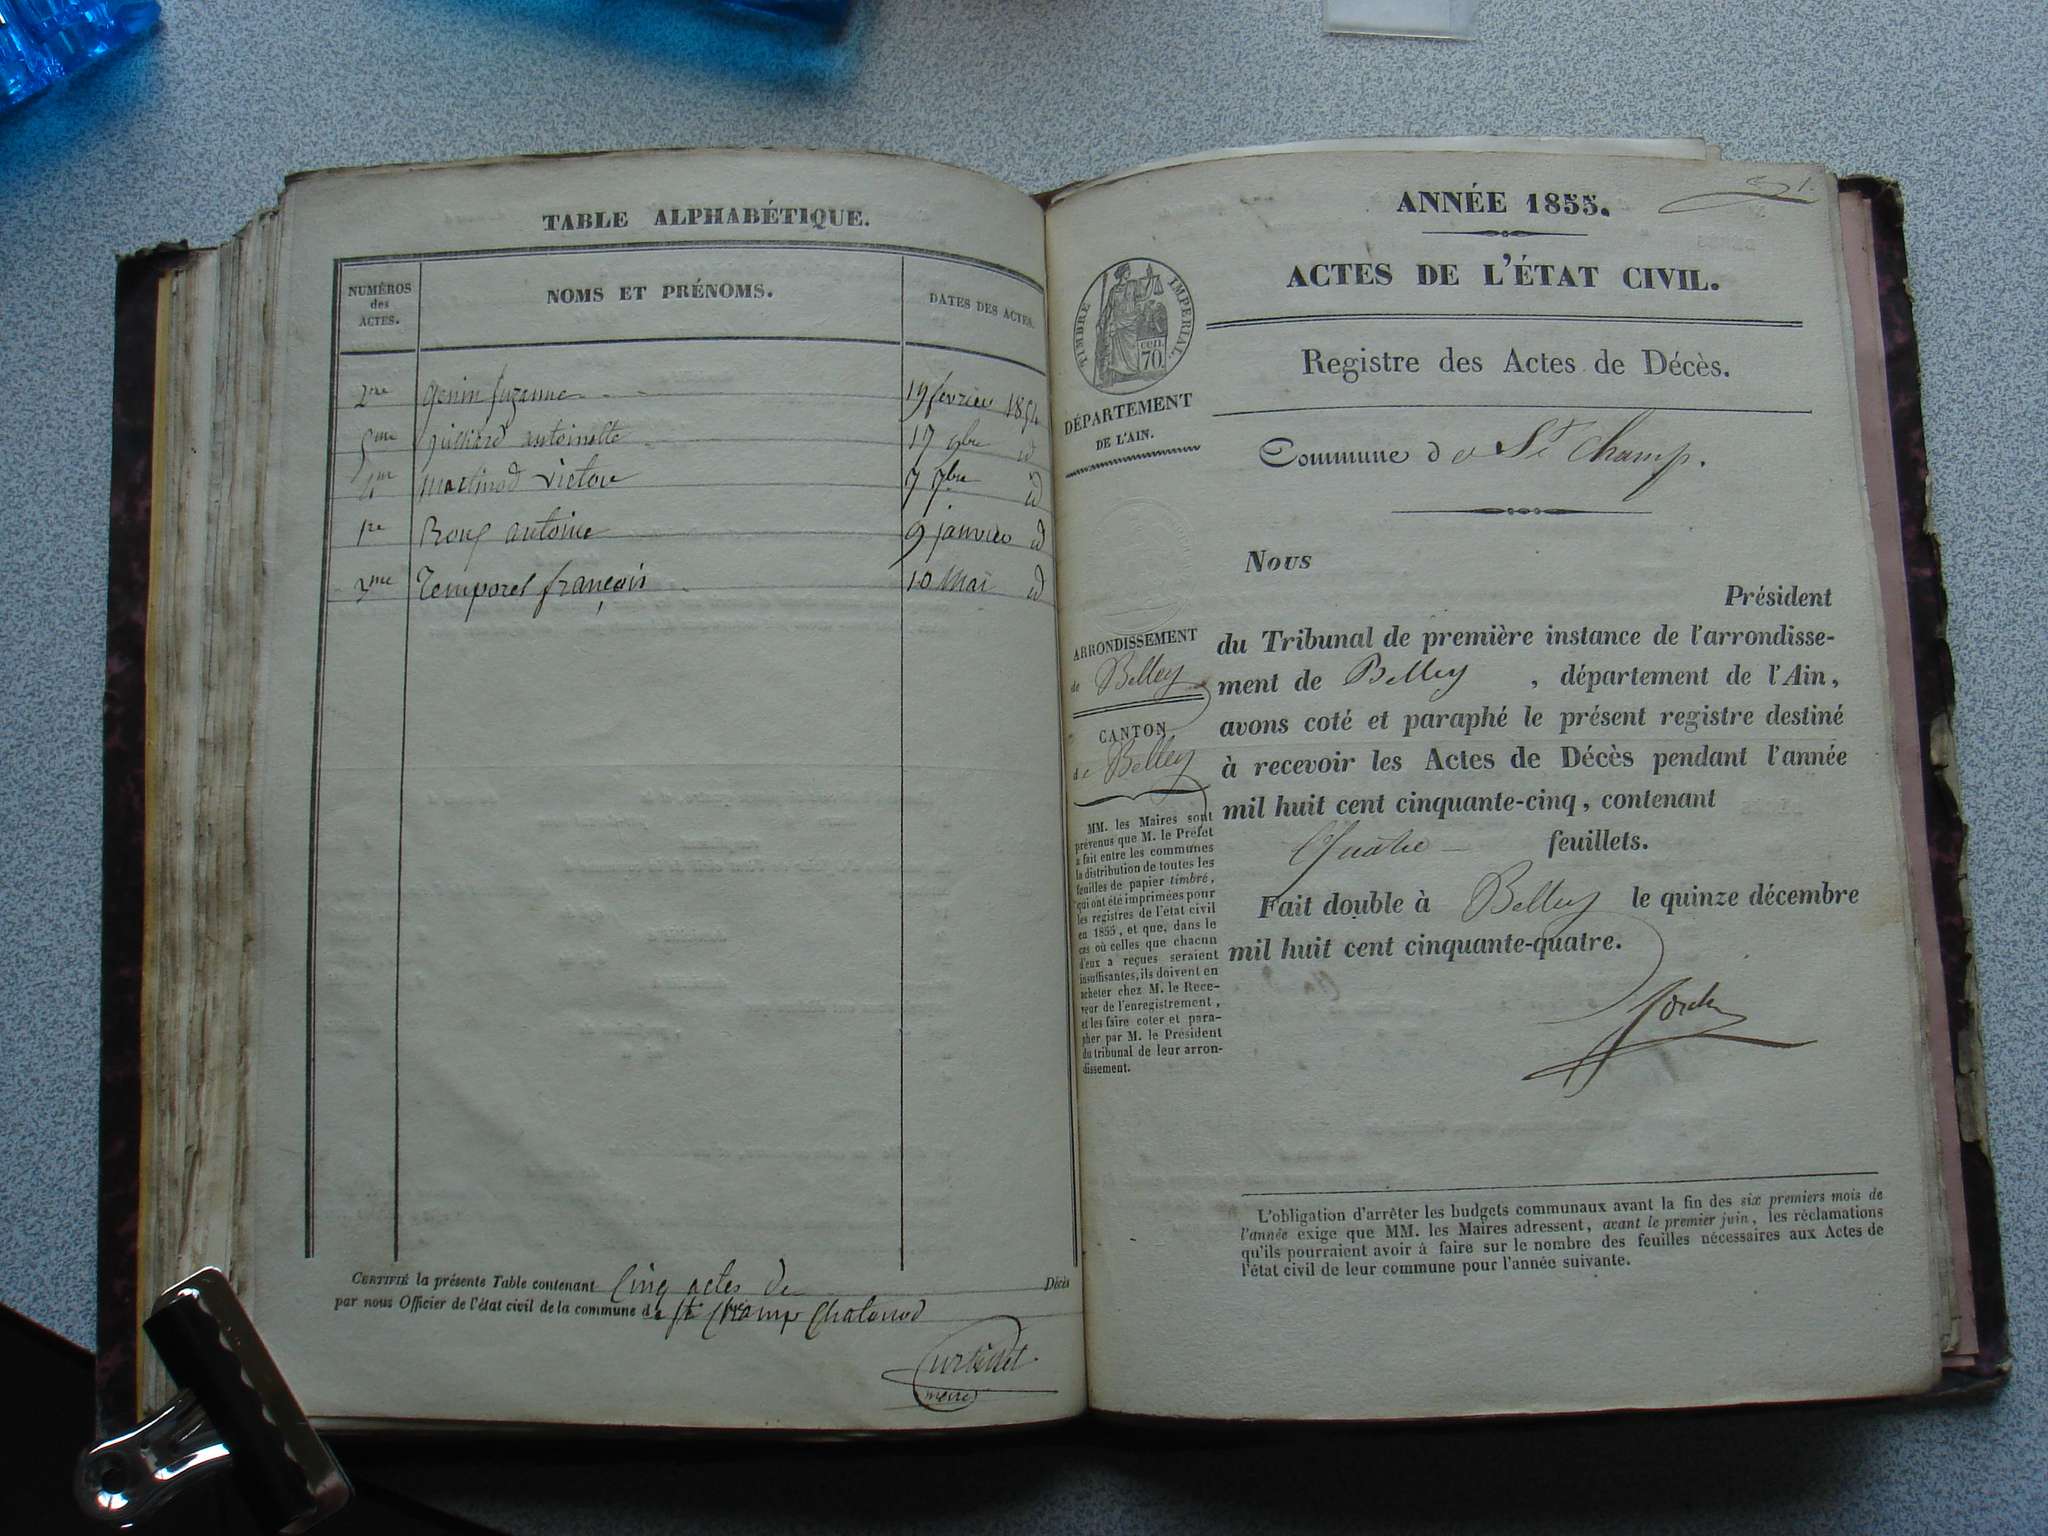 TABLE ALPHABÉTIQUE.
NUMÉROS
des
ACTES.
NOMS ET PRÉNOMS.
DATES DES ACTES.
2me genin suzanne 19 février 1854
5me antoinette 17 9bre id
4me martinod victor 7 7bre id
1re Roux antoine 9 janvier id
3me Temporel françois 10 Mai id
CERTIFIÉ la présente Table contenant Cinq actes de Décès
par nous Officier de l'état civil de la commune de St Champ Chatonod
maire
1.
ANNÉE 1855.
ACTES DE L'ÉTAT CIVIL.
TIMBRE IMPÉRIAL.
cen.
70.
Registre des Actes de Décès.
DÉPARTEMENT
DE L'AIN.
Commune de St Champ.
Nous
Président
du Tribunal de première instance de l'arrondisse-
ment de Belley, département de l'Ain,
avons coté et paraphé le présent registre destiné
à recevoir les Actes de Décès pendant l'année
mil huit cent cinquante-cinq, contenant
Quatre feuillets.
Fait double à Belley le quinze décembre
mil huit cent cinquante-quatre.
ARRONDISSEMENT
de Belley
CANTON
de Belley
MM. les Maires sont
prévenus que M. le Préfet
a fait entre les communes
la distribution de toutes les
feuilles de papier timbré,
qui ont été imprimées pour
les registres de l'état civil
en 1855, et que, dans le
cas où celles que chacun
d'eux a reçues seraient
insuffisantes, ils doivent en
acheter chez M. le Rece-
veur de l'enregistrement,
et les faire coter et para-
pher par M. le Président
du tribunal de leur arron-
dissement.
L'obligation d'arrêter les budgets communaux avant la fin des six premiers mois de
l'année exige que MM. les Maires adressent, avant le premier juin, les réclamations
qu'ils pourraient avoir à faire sur le nombre des feuilles nécessaires aux Actes de
l'état civil de leur commune pour l'année suivante.